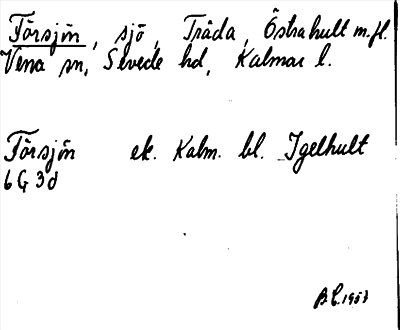 Försjön, sjö, Tråda, Östrahult m.fl.
Vena sn, Sevede hd, Kalmar l.
Försjön ek. Kalm. bl. Igelhult
6G 3d